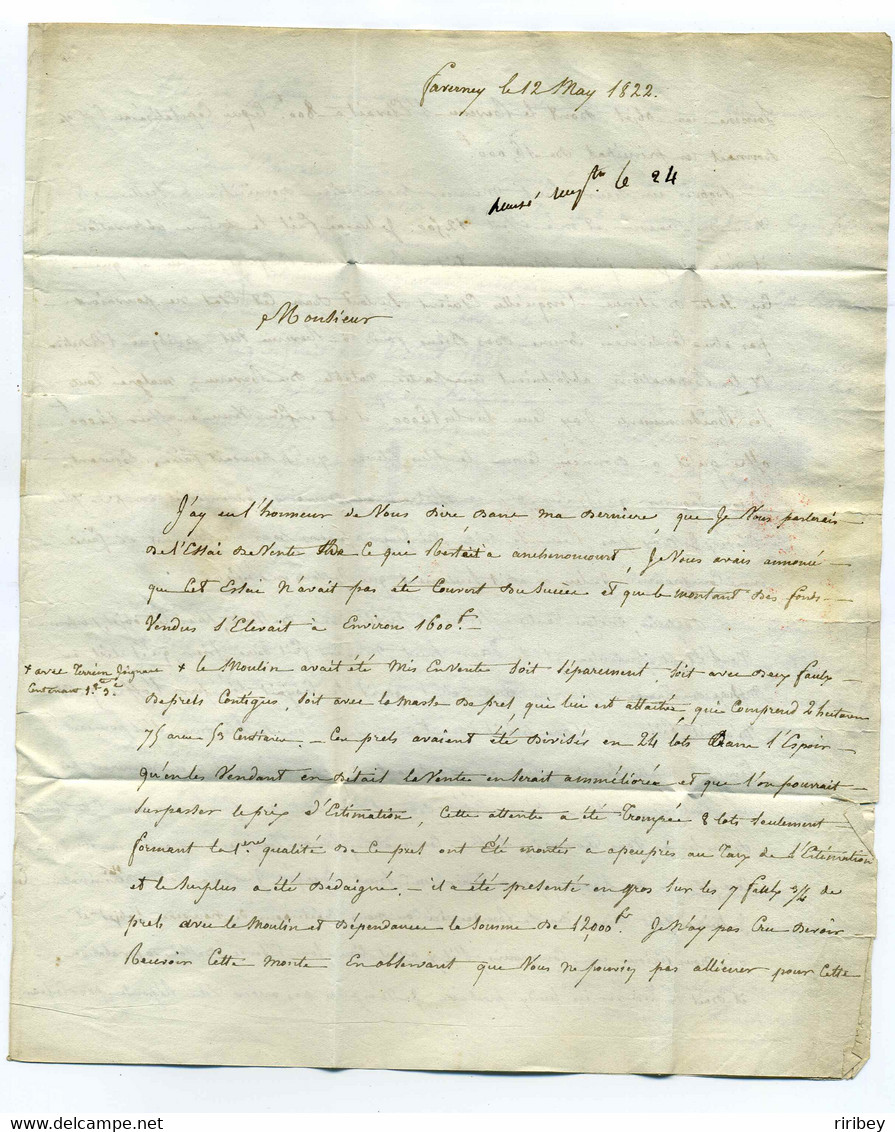 faverney le 12 May 1822.
le 24
Monsieur
J'ay eu l'honneur de Vous Dire Dans ma Derniere, que Je Vous parlerais
De l'Essai De Vente De Ce qui Restait a anchenoncourt, Je Vous avais annoncé
que Cet Essai N'avait pas été Couvert Du Succès et que le montant Des fonds
Vendus S'Elevait à Environ 1600f.
+ avec Terrein Joignant
Contenant
+ le Moulin avait été Mis En Vente Soit Séparement, Soit avec Deux faulx
De prels Contigus, Soit avec la Masse De pret, qui lui est attachée, qui Comprend 2 hectares
75 ares 53 Centiares. Ces prets avaient été Divisés en 24 lots Dans l'Espoir
qu'en les Vendant en Détail la Vente en Serait amméliorée et que l'on pourrait
Surpasser le prix D'Estimation, Cette attente a été Trompée 8 lots Seulement
formant la 1ere qualité De Ce pret ont Été montés a apeuprès au Taux De l'Estimation
et le Surplus a été Dédaigné. il a été présenté en gros Sur les 7 faulx 3/4 de
prets avec le Moulin et Dépendances la Somme De 12,000fr. Je N'ay pas Cru Devoir
Recevoir Cette Monte En observant que Vous ne pouviez pas alliéner pour Cette
ririBey